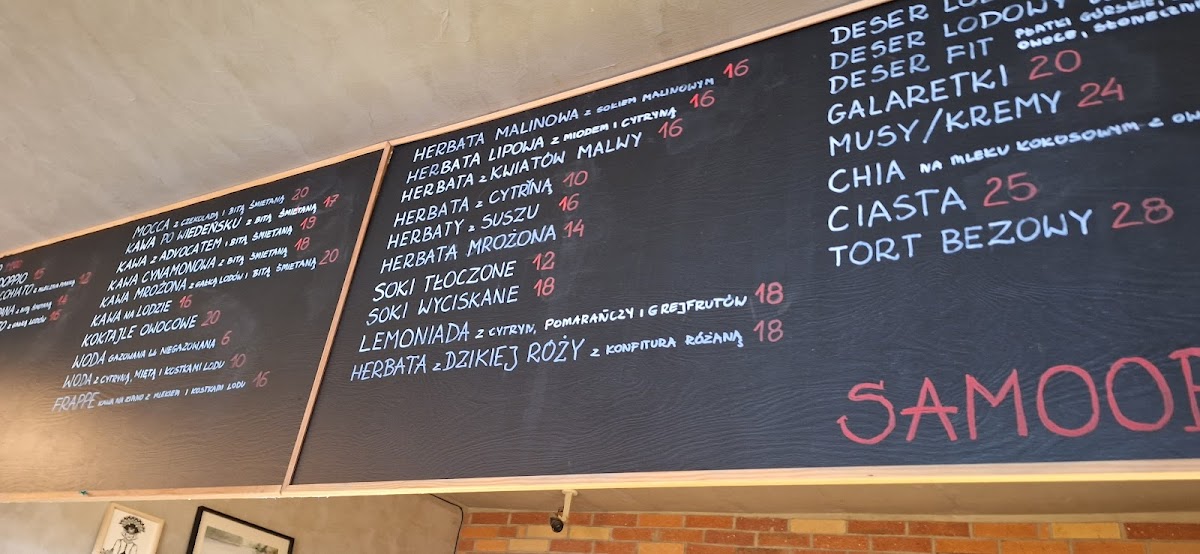 DOPPIO 15
14
16
MOCCA z CZEKOLADĄ I BITĄ ŚMIETANĄ 20
KAWA PO WIEDEŃSKU z BITĄ ŚMIETANĄ 17
KAWA z ADVOCATEM i BITĄ ŚMIETANĄ 19
KAWA CYNAMONOWA z BITĄ ŚMIETANĄ 18
KAWA MROŻONA z GAŁKĄ LODÓW I BITĄ ŚMIETANĄ 20
KAWA NA LODZIE 16
KOKTAJLE OWOCOWE 20
WODA GAZOWANA LUB NIEGAZOWANA 6
WODA z CYTRYNĄ, MIĘTĄ I KOSTKAMI LODU 10
FRAPPE KAWA NA ZIMNO Z MLEKIEM I KOSTKAMI LODU 16
HERBATA MALINOWA z SOKIEM MALINOWYM 16
HERBATA LIPOWA z MIODEM I CYTRYNĄ 16
HERBATA z KWIATÓW MALWY 16
HERBATA z CYTRYNĄ 10
HERBATY z SUSZU 16
HERBATA MROŻONA 14
SOKI TŁOCZONE 12
SOKI WYCISKANE 18
LEMONIADA z CYTRYN, POMARAŃCZY I GREJFRUTÓW 18
HERBATA z DZIKIEJ RÓŻY z KONFITURA RÓŻANĄ 18
DESER
DESER LODOWY
DESER FIT PŁATKI GÓRSKIE,
OWOCE,
GALARETKI 20
MUSY/KREMY 24
CHIA NA MLEKU KOKOSOWYM Z
CIASTA 25
TORT BEZOWY 28
SAMOO